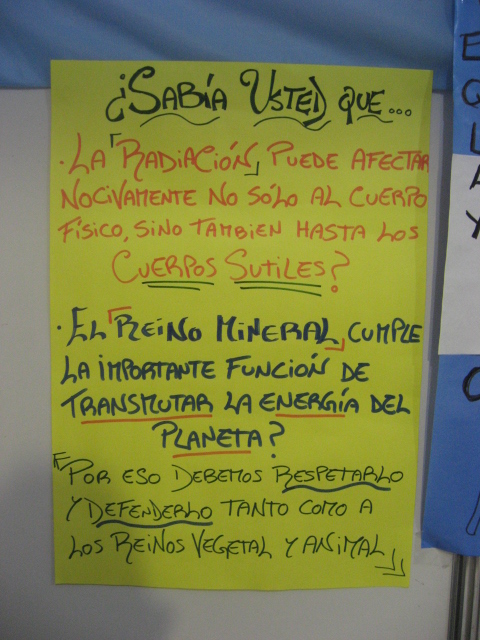 ¿SABÍA USTED QUE...
· LA "RADIACIÓN" PUEDE AFECTAR
NOCIVAMENTE NO SÓLO AL CUERPO
FÍSICO, SINO TAMBIEN HASTA LOS
CUERPOS SUTILES?
· EL "REINO MINERAL" CUMPLE
LA IMPORTANTE FUNCIÓN DE
TRANSMUTAR LA ENERGÍA DEL
PLANETA?
"POR ESO DEBEMOS RESPETARLO
Y DEFENDERLO TANTO COMO A
LOS REINOS VEGETAL Y ANIMAL"